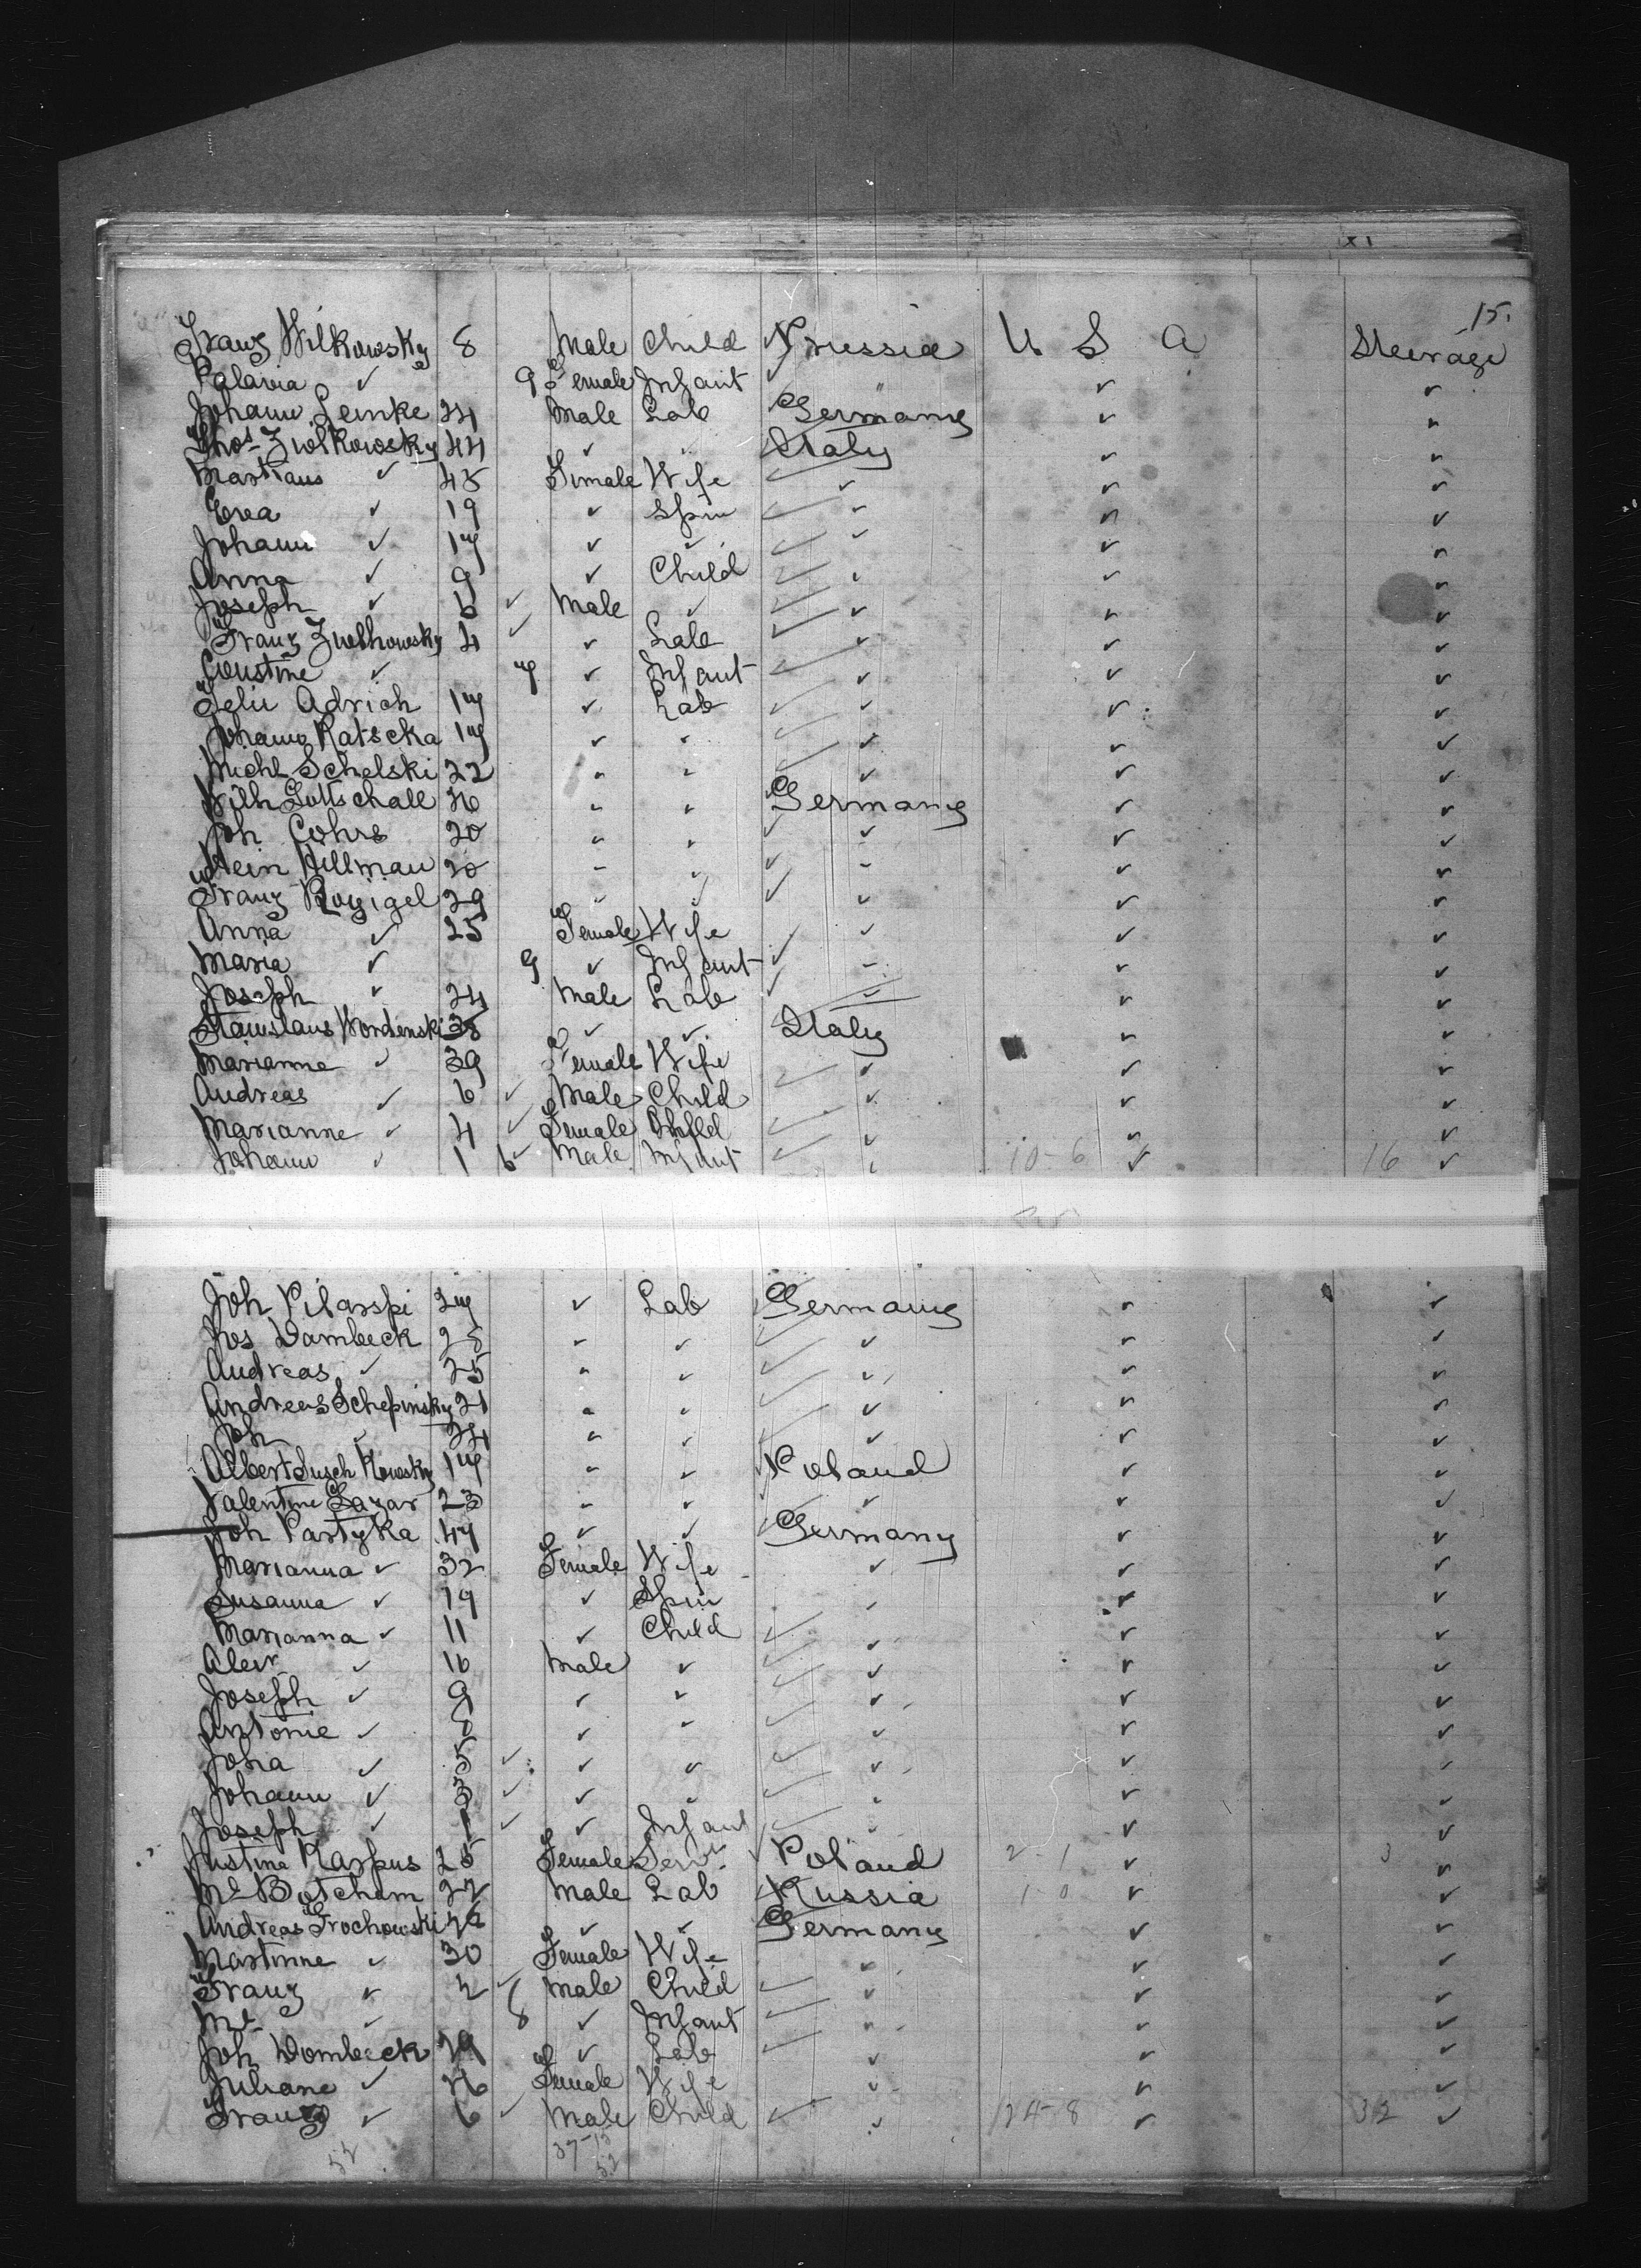 15.
Franz Wilkowsky 8 Male Child Prussia U S A Steerage
Palavia ✓ 9 Female Infant " ✓ ✓
Johann Lemke 24 Male Lab Germany ✓ "
Thos Ziolkowsky 44 ✓ Italy ✓ "
✓ 45 Female Wife ✓ ✓ ✓
✓ 19 ✓ Spin ✓ ✓ ✓
Johann ✓ 17 ✓ ✓ ✓ ✓ ✓
Anna ✓ 9 ✓ Child ✓ ✓ ✓
Joseph ✓ 6 ✓ Male ✓ ✓ ✓ ✓
Franz 4 ✓ ✓ Lab ✓ ✓ ✓
✓ 7 ✓ Infant ✓ ✓ ✓
Adrich 17 ✓ Lab ✓ ✓ ✓
Johann Ratscka 17 ✓ ✓ ✓ ✓ ✓
Michl Schelski 22 " " ✓ ✓ ✓
Wilh Gottschall 26 " " Germany ✓ ✓
Joh Cohrs 20 " " ✓ ✓ ✓
Hein Hillman 20 " " ✓ ✓ ✓
Franz 29 " " ✓ ✓ ✓
Anna ✓ 25 Female Wife ✓ ✓ ✓
Maria ✓ 9 ✓ Infant ✓ ✓ ✓
Joseph ✓ 24 Male Lab ✓ ✓ ✓
Stanislaus Wordenski 38 ✓ ✓ Italy ✓ ✓
Marianne ✓ 39 Female Wife ✓ ✓ ✓
Andreas ✓ 6 ✓ Male Child ✓ ✓ ✓
Marianne ✓ 4 ✓ Female Child ✓ ✓ ✓
Johann ✓ 1 6 ✓ Male Infant ✓ 10-6 ✓ 16 ✓
Joh Pilarski 27 ✓ Lab Germany ✓ ✓
Jos Dambeck 25 " ✓ ✓ ✓ ✓
Andreas ✓ 25 " ✓ ✓ ✓ ✓
Andreas Schepinsky 21 " ✓ ✓ ✓ ✓
Joh ✓ 24 " ✓ ✓ ✓ ✓
Albert 17 " ✓ Poland ✓ ✓
Valentine Lazar 23 " ✓ ✓ ✓ ✓
Joh Partyka 47 ✓ ✓ Germany ✓ ✓
Marianna ✓ 32 Female Wife ✓ ✓ ✓
Susanna ✓ 19 ✓ Spin ✓ ✓ ✓
Marianna ✓ 11 ✓ Child ✓ ✓ ✓
✓ 10 Male ✓ ✓ ✓ ✓
Joseph ✓ 9 ✓ ✓ ✓ ✓ ✓
Antonie ✓ 8 ✓ ✓ ✓ ✓ ✓
Joha ✓ 5 ✓ ✓ ✓ ✓ ✓ ✓
Johann ✓ 3 ✓ ✓ ✓ ✓ ✓ ✓
Joseph ✓ 1 ✓ ✓ Infant ✓ ✓ ✓
Justina Karpus 25 Female Serv. Poland 2-1 ✓ 3 ✓
Botcham 22 Male Lab Russia 1 0 ✓ ✓
Andreas Frochowski 26 ✓ ✓ Germany ✓ ✓
Martinne ✓ 30 Female Wife ✓ ✓ ✓
Franz ✓ 2 ✓ Male Child ✓ ✓ ✓
✓ 8 ✓ Infant ✓ ✓ ✓
Joh Dombeck 29 ✓ Lab ✓ ✓ ✓
Juliane ✓ 26 Female Wife ✓ ✓ ✓
Franz ✓ 6 ✓ Male Child ✓ 24-8 ✓ 32 ✓
52 37-15
52